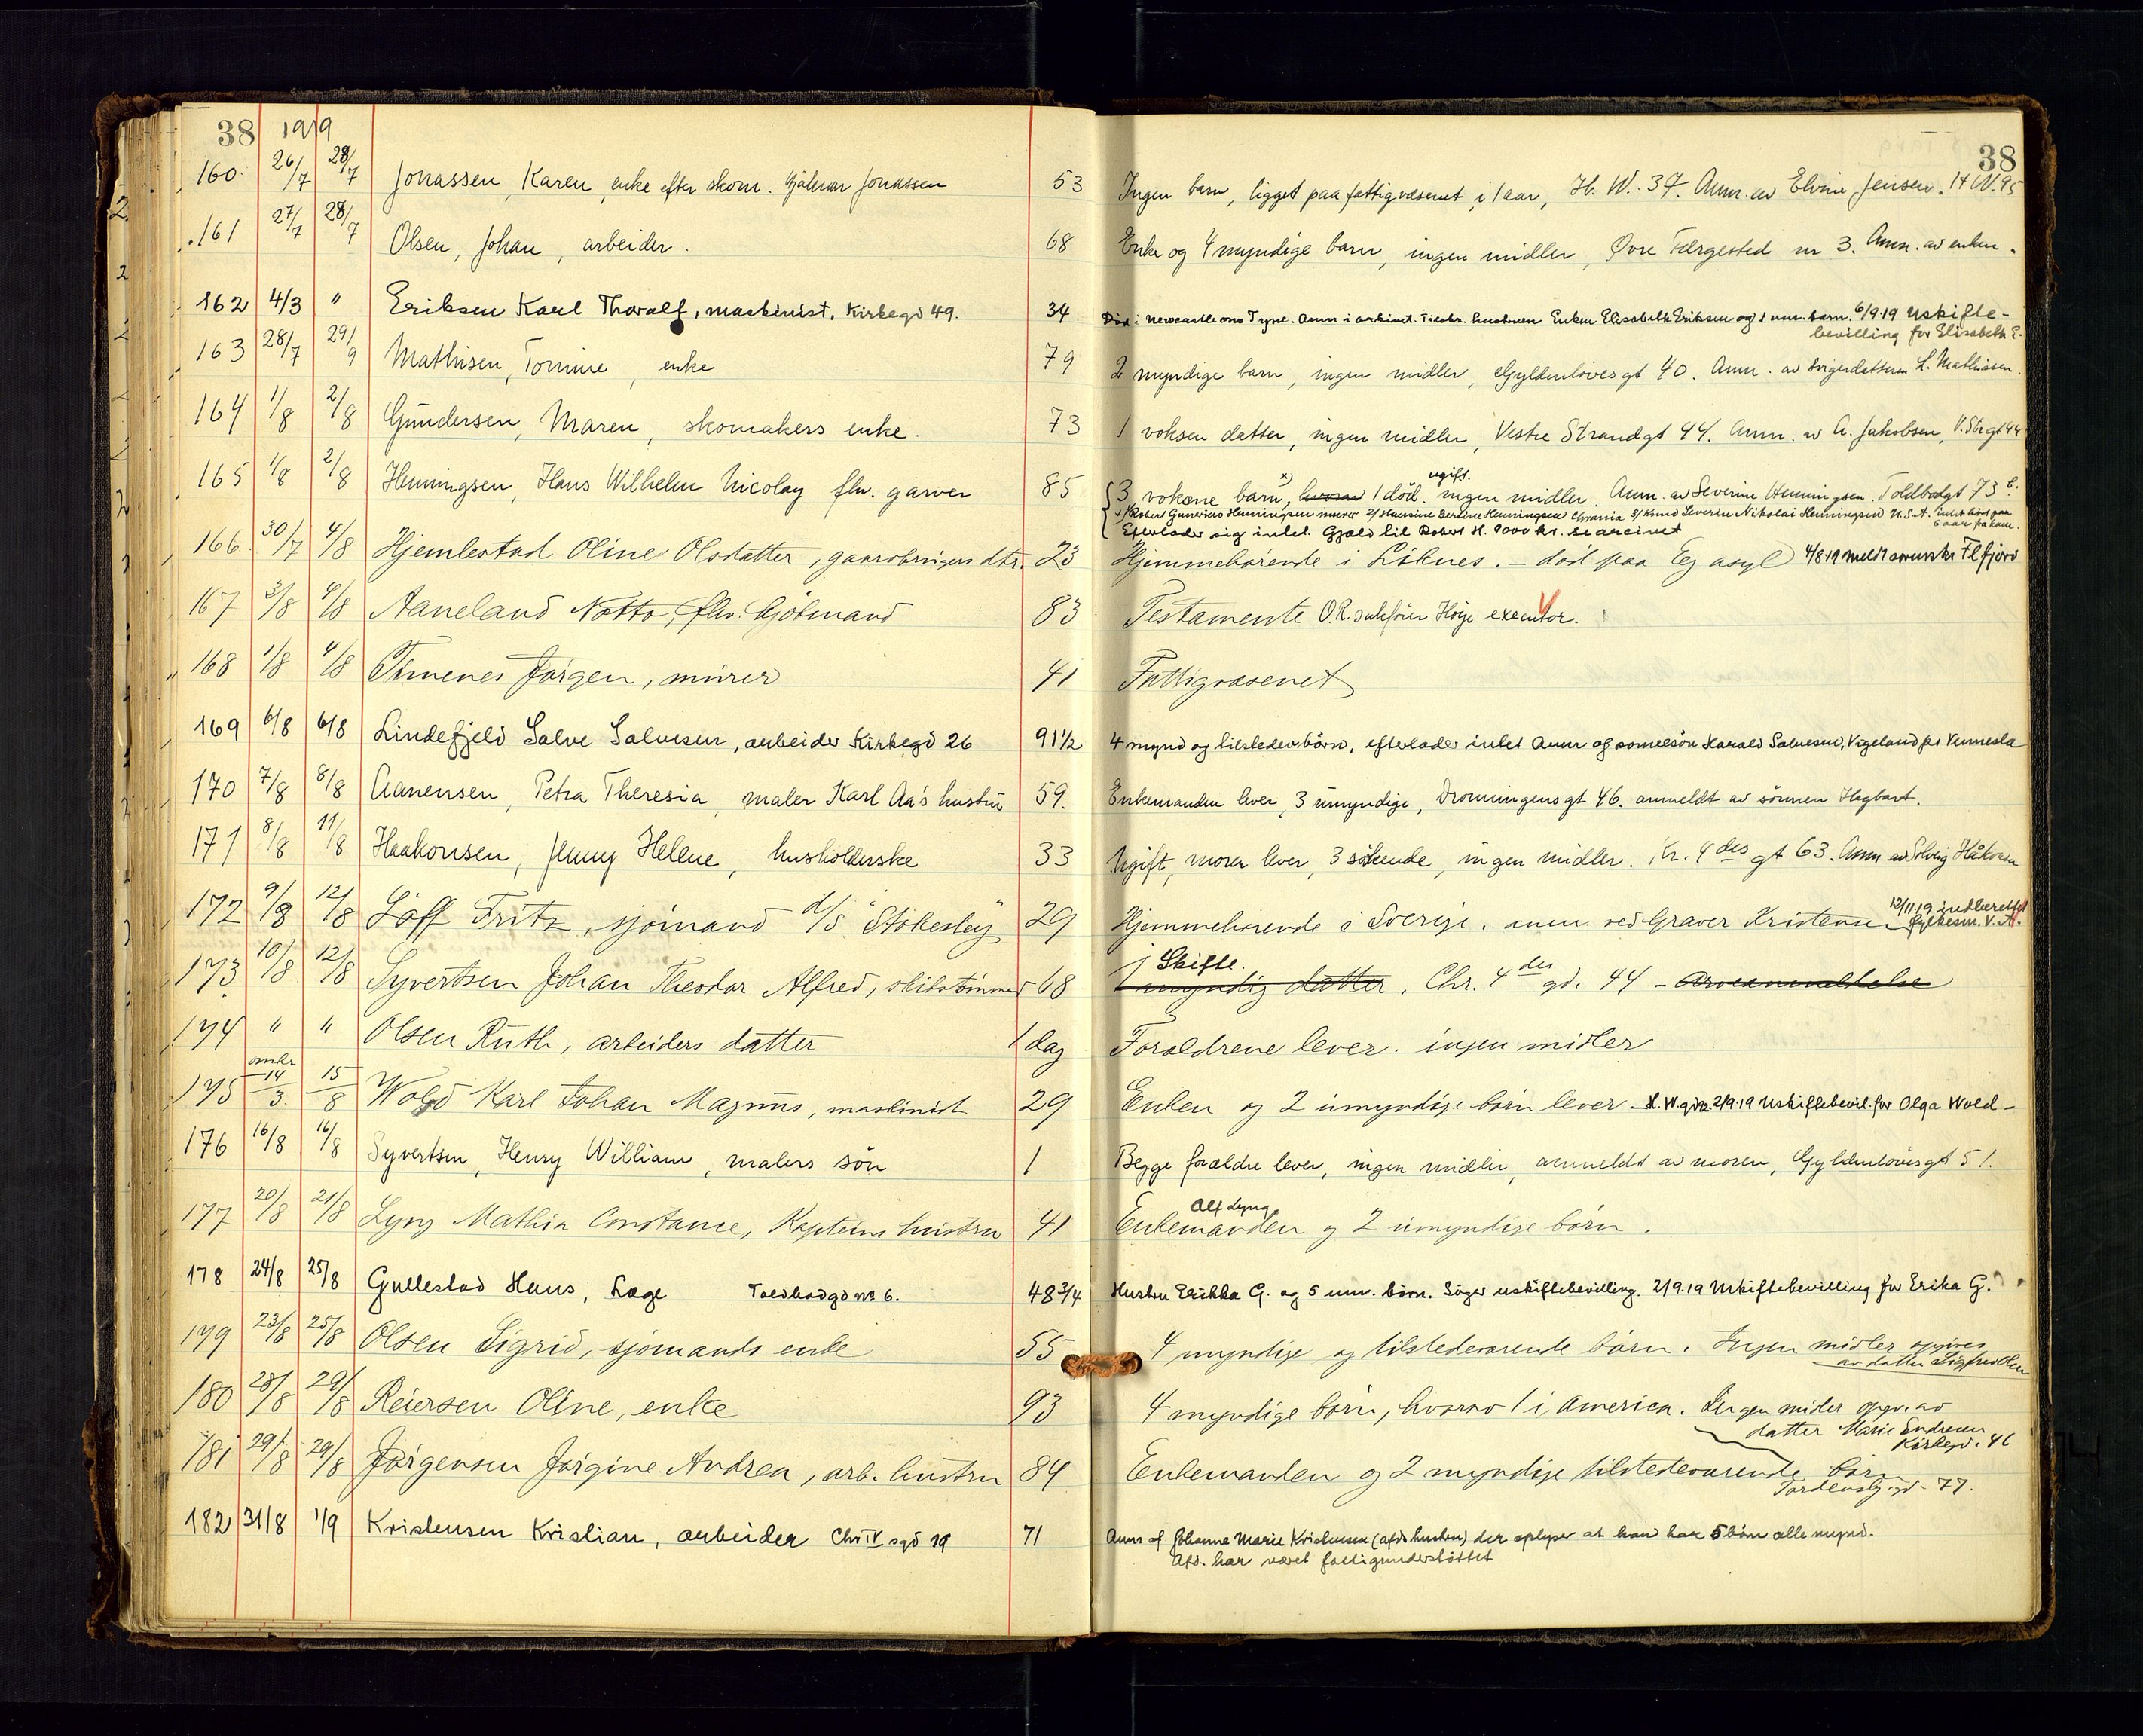 38 1919
38
160. 26/7 28/7 Jonassen, Karen, enke efter skom. Hjalmar Jonassen 53 Ingen barn, ligget paa fattigvæsenet i 1 aar, H. W. 37. Anm. av Elvine Jensen. H W. 95
161 27/7 28/7 Olsen, Johan, arbeider. 68 Enke og 4 myndige barn, ingen midler, Øvre Færgested nr 3. Anm. av enken.
162 4/3 " Eriksen Karl Thoralf, maskinist. Kirkegd 49. 34 Død i Newcastle ons Tyne. Anm i arkivet. Enken Elisabeth Eriksen og 1 um. barn. 6/9.19 Uskifte-
bevilling for Elisabeth E.
163 28/7 29/9 Mathisen, Tomine, enke 79 2 myndige barn, ingen midler, Gyldenløvesgt 40. Anm. av svigerdatteren L. Mathiasen.
164 1/8 2/8 Gundersen, Maren, skomakers enke. 73 1 voksen datter, ingen midler, Vestre Strandgt 44. Anm. av A. Jakobsen, V. Str gt 44
165 1/8 2/8 Henningsen, Hans Wilhelm Nicolay fhv. garver 85 3 voksne barn x), hvorav 1 død. ugift. ingen midler. Anm. av Severine Henningsen. Toldbodgt 73 b.
x) 1/ Robert Gunerius Henningsen murer 2/ Hansine Bertine Henningsen Chrania 3/ Knud Severin Nikolai Henningsen U.S.A. intet hørt paa
6 aar
Efterlader sig intet. Gjæld til Robert H. 9000 kr. se arcivet
166. 30/7 4/8 Hjemlestad Oline Olsdatter, gaardbrugers dtr. 23 Hjemmehørende i Liknes. – død paa Eg asyl 4/8 19 meldt sorenskr Flkfjord
167 3/8 4/8 Aaneland Notto, fhv. Gjötmand 83 Testamente O.R. sakfører Høye executor.
168 1/8 4/8 Timenes Jørgen, murer 41 Fattigvæsenet
169 6/8 6/8 Lindefjeld Salve Salvesen, arbeider Kirkegd 26 91 1/2 4 mynd og tilstedev børn, efterlader intet Anm af sønnesøn Harald Salvesen, Vigeland pr Vennesla
170 7/8 8/8 Aanensen, Petra Theresia, maler Karl Aa's hustru 59. Enkemanden lever, 3 umyndige, Dronningensgt 46. anmeldt av sönnen Hagbart.
171 8/8 11/8 Haakonsen, Jenny Helene, husholderske 33 Ugift, moren lever, 3 søskende, ingen midler. Kr. 4 des gt 63. Anm av Solveig Håkonsen
172 9/8 12/8 Löff Fritz, sjömand d/s "Stokesley" 29 Hjemmehörende i Sverige. anm. ved Graver Kristensen 12/11.19 indberettet
fylkesm. V.A.
173 10/8 12/8 Syvertsen Johan Theodor Alfred, skibstömmerm 68 Skifte. 1 myndig datter. Chr. 4 des gd. 44 - arveanmeldelse
174 " " Olsen Ruth, arbeiders datter 1 dag Forældrene lever. ingen midler
175 omkr 14/3. 15/8 Wold Karl Johan Magnus, maskinist 29 Enken og 2 umyndige børn lever – H. W gd 2/9.19 Uskiftebevil. for Olga Wold –
176 16/8 16/8 Syvertsen, Henry William, malers sön 1 Begge forældre lever, ingen midler, anmeldt av moren, Gyldenlövesgt 51.
177 20/8 21/8 Lyng Mathia Constance, Kapteins hustru 41 Enkemanden Alf Lyng og 2 umyndige börn.
178 24/8 25/8 Gullestad Hans, Læge Toldbodgd No 6. 48 3/4 Hustru Erikka G. og 5 um. børn. Søger uskiftebevilling. 2/9.19 Uskiftebevilling for Erika G.
179 23/8 25/8 Olsen Sigrid, sjömands enke 55 4 myndige og tilstedeværende börn. Ingen midler opgives
av datter Sigfrid Olsen
180 28/8 29/8 Reiersen Oline, enke 93 4 myndige börn, hvorav 1 i America. Ingen midler opgv. av
datter Marie Endresen
Kirkegd. 46
181 29/8 29/8 Jørgensen Jørgine Andrea, arb. hustru 84 Enkemanden og 2 myndige tilstedeværende börn
Tordenskj. gd. 77.
182 31/8 1/9 Kristensen Kristian, arbeider Chr IV sgd 19 71 Anm af Johanne Marie Kristensen (afds hustru) der oplyser at han har 5 børn alle mynd.
Afd. har været fattigunderstøttet